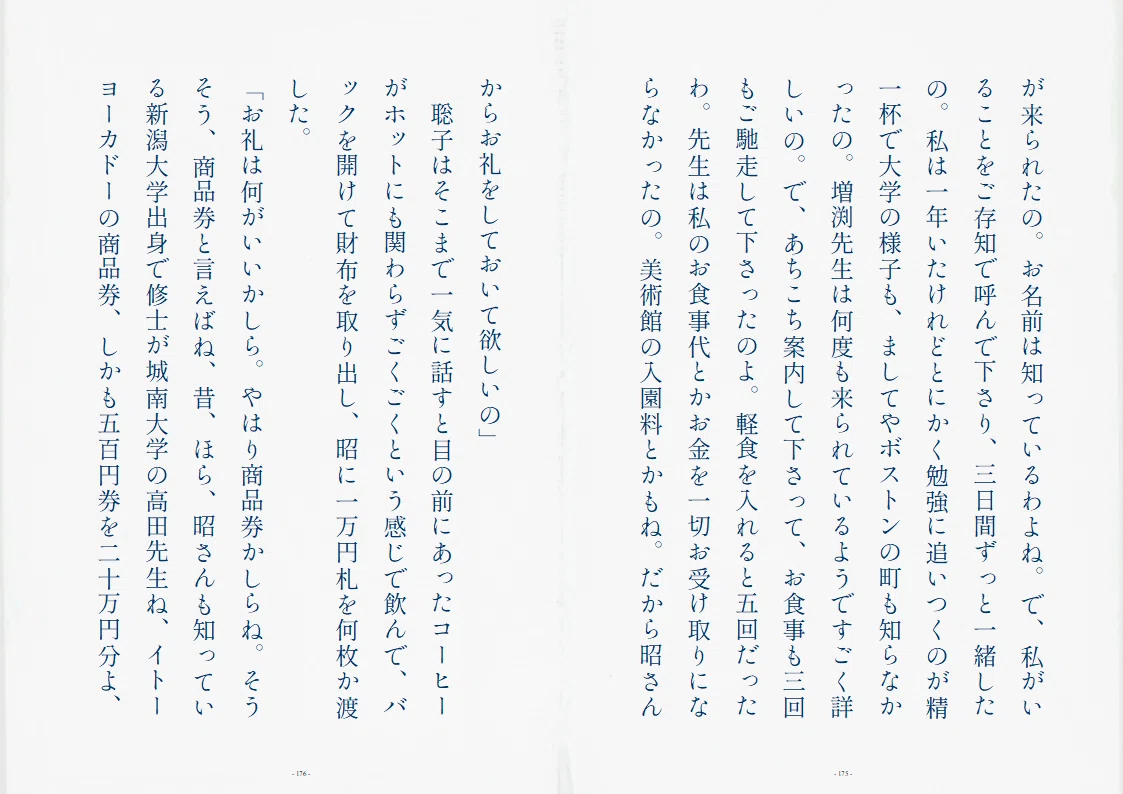 が来られたの。お名前は知っているわよね。で、私がい
ることをご存知で呼んで下さり、三日間ずっと一緒した
の。私は一年いたけれどとにかく勉強に追いつくのが精
一杯で大学の様子も、ましてやボストンの町も知らなか
ったの。増渕先生は何度も来られているようですごく詳
しいの。で、あちこち案内して下さって、お食事も三回
もご馳走して下さったのよ。軽食を入れると五回だった
わ。先生は私のお食事代とかお金を一切お受け取りにな
らなかったの。美術館の入園料とかもね。だから昭さん
- 175 -
からお礼をしておいて欲しいの」
聡子はそこまで一気に話すと目の前にあったコーヒー
がホットにも関わらずごくごくという感じで飲んで、バ
ックを開けて財布を取り出し、昭に一万円札を何枚か渡
した。
「お礼は何がいいかしら。やはり商品券かしらね。そう
そう、商品券と言えばね、昔、ほら、昭さんも知ってい
る新潟大学出身で修士が城南大学の高田先生ね、イトー
ヨーカドーの商品券、しかも五百円券を二十万円分よ、
- 176 -